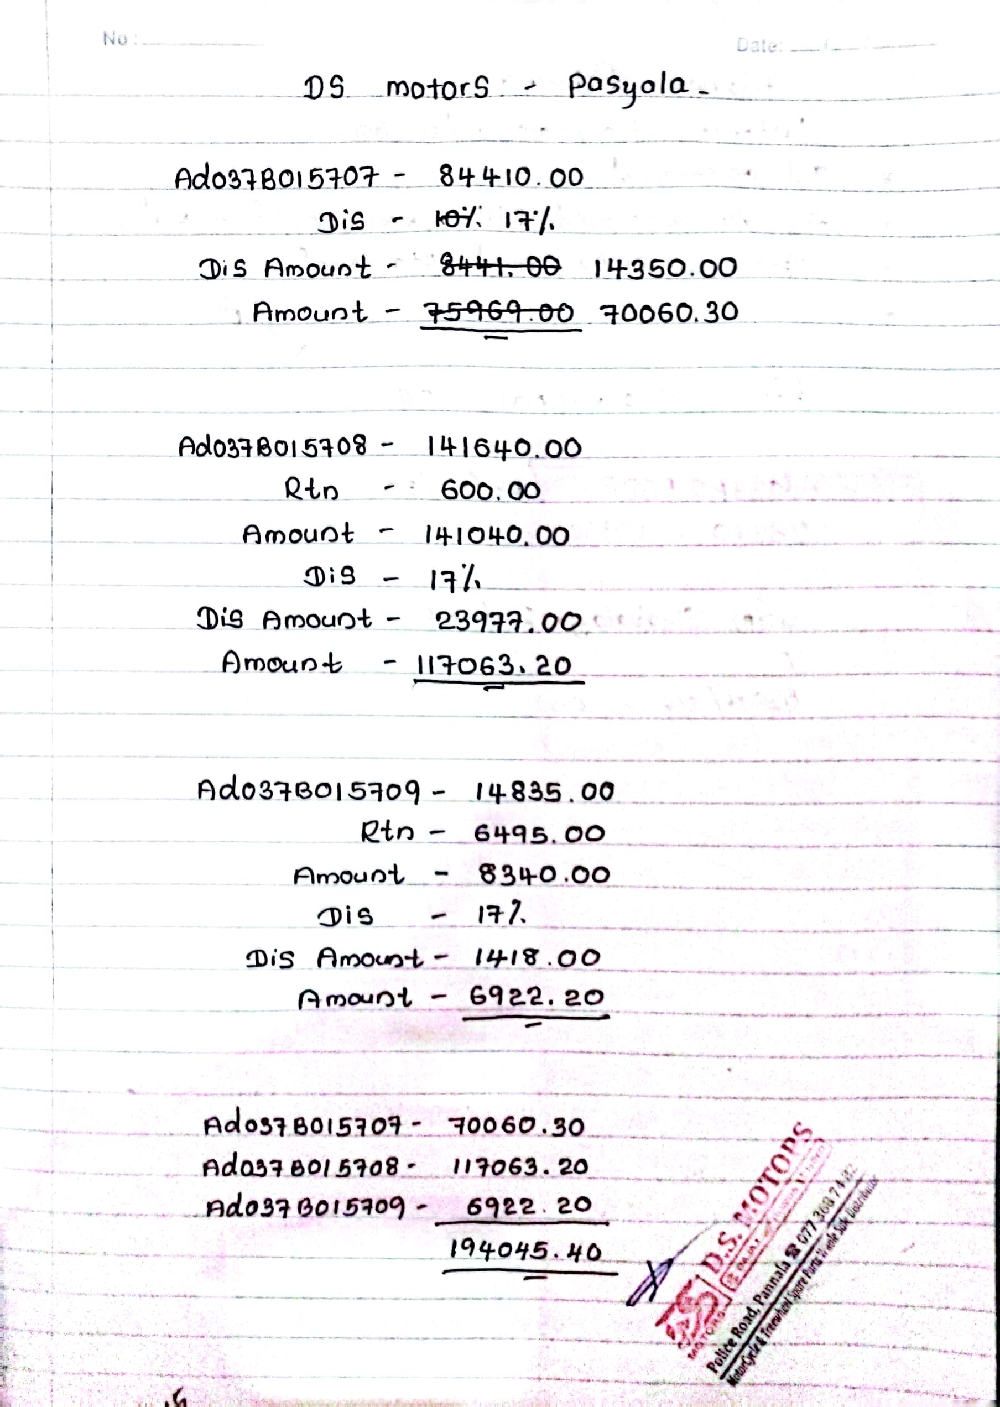 No :
Date: / /
DS motors - Pasyala -
Ad037B015707 - 84410.00
Dis - 10% 17%
Dis Amount - 8441.00 14350.00
Amount - 75969.00 70060.30
Ad037B015708 - 141640.00
Rtn - 600.00
Amount - 141040.00
Dis - 17%
Dis Amount - 23977.00
Amount - 117063.20
Ad037B015709 - 14835.00
Rtn - 6495.00
Amount - 8340.00
Dis - 17%
Dis Amount - 1418.00
Amount - 6922.20
Ad037B015707 - 70060.30
Ad037B015708 - 117063.20
Ad037B015709 - 6922.20
194045.40
D.S. MOTORS
MOTORS
Police Road, Pannala ☎ 077 308 74
Motorcycle & Threewheel Spare Parts Whole Sale Distributor